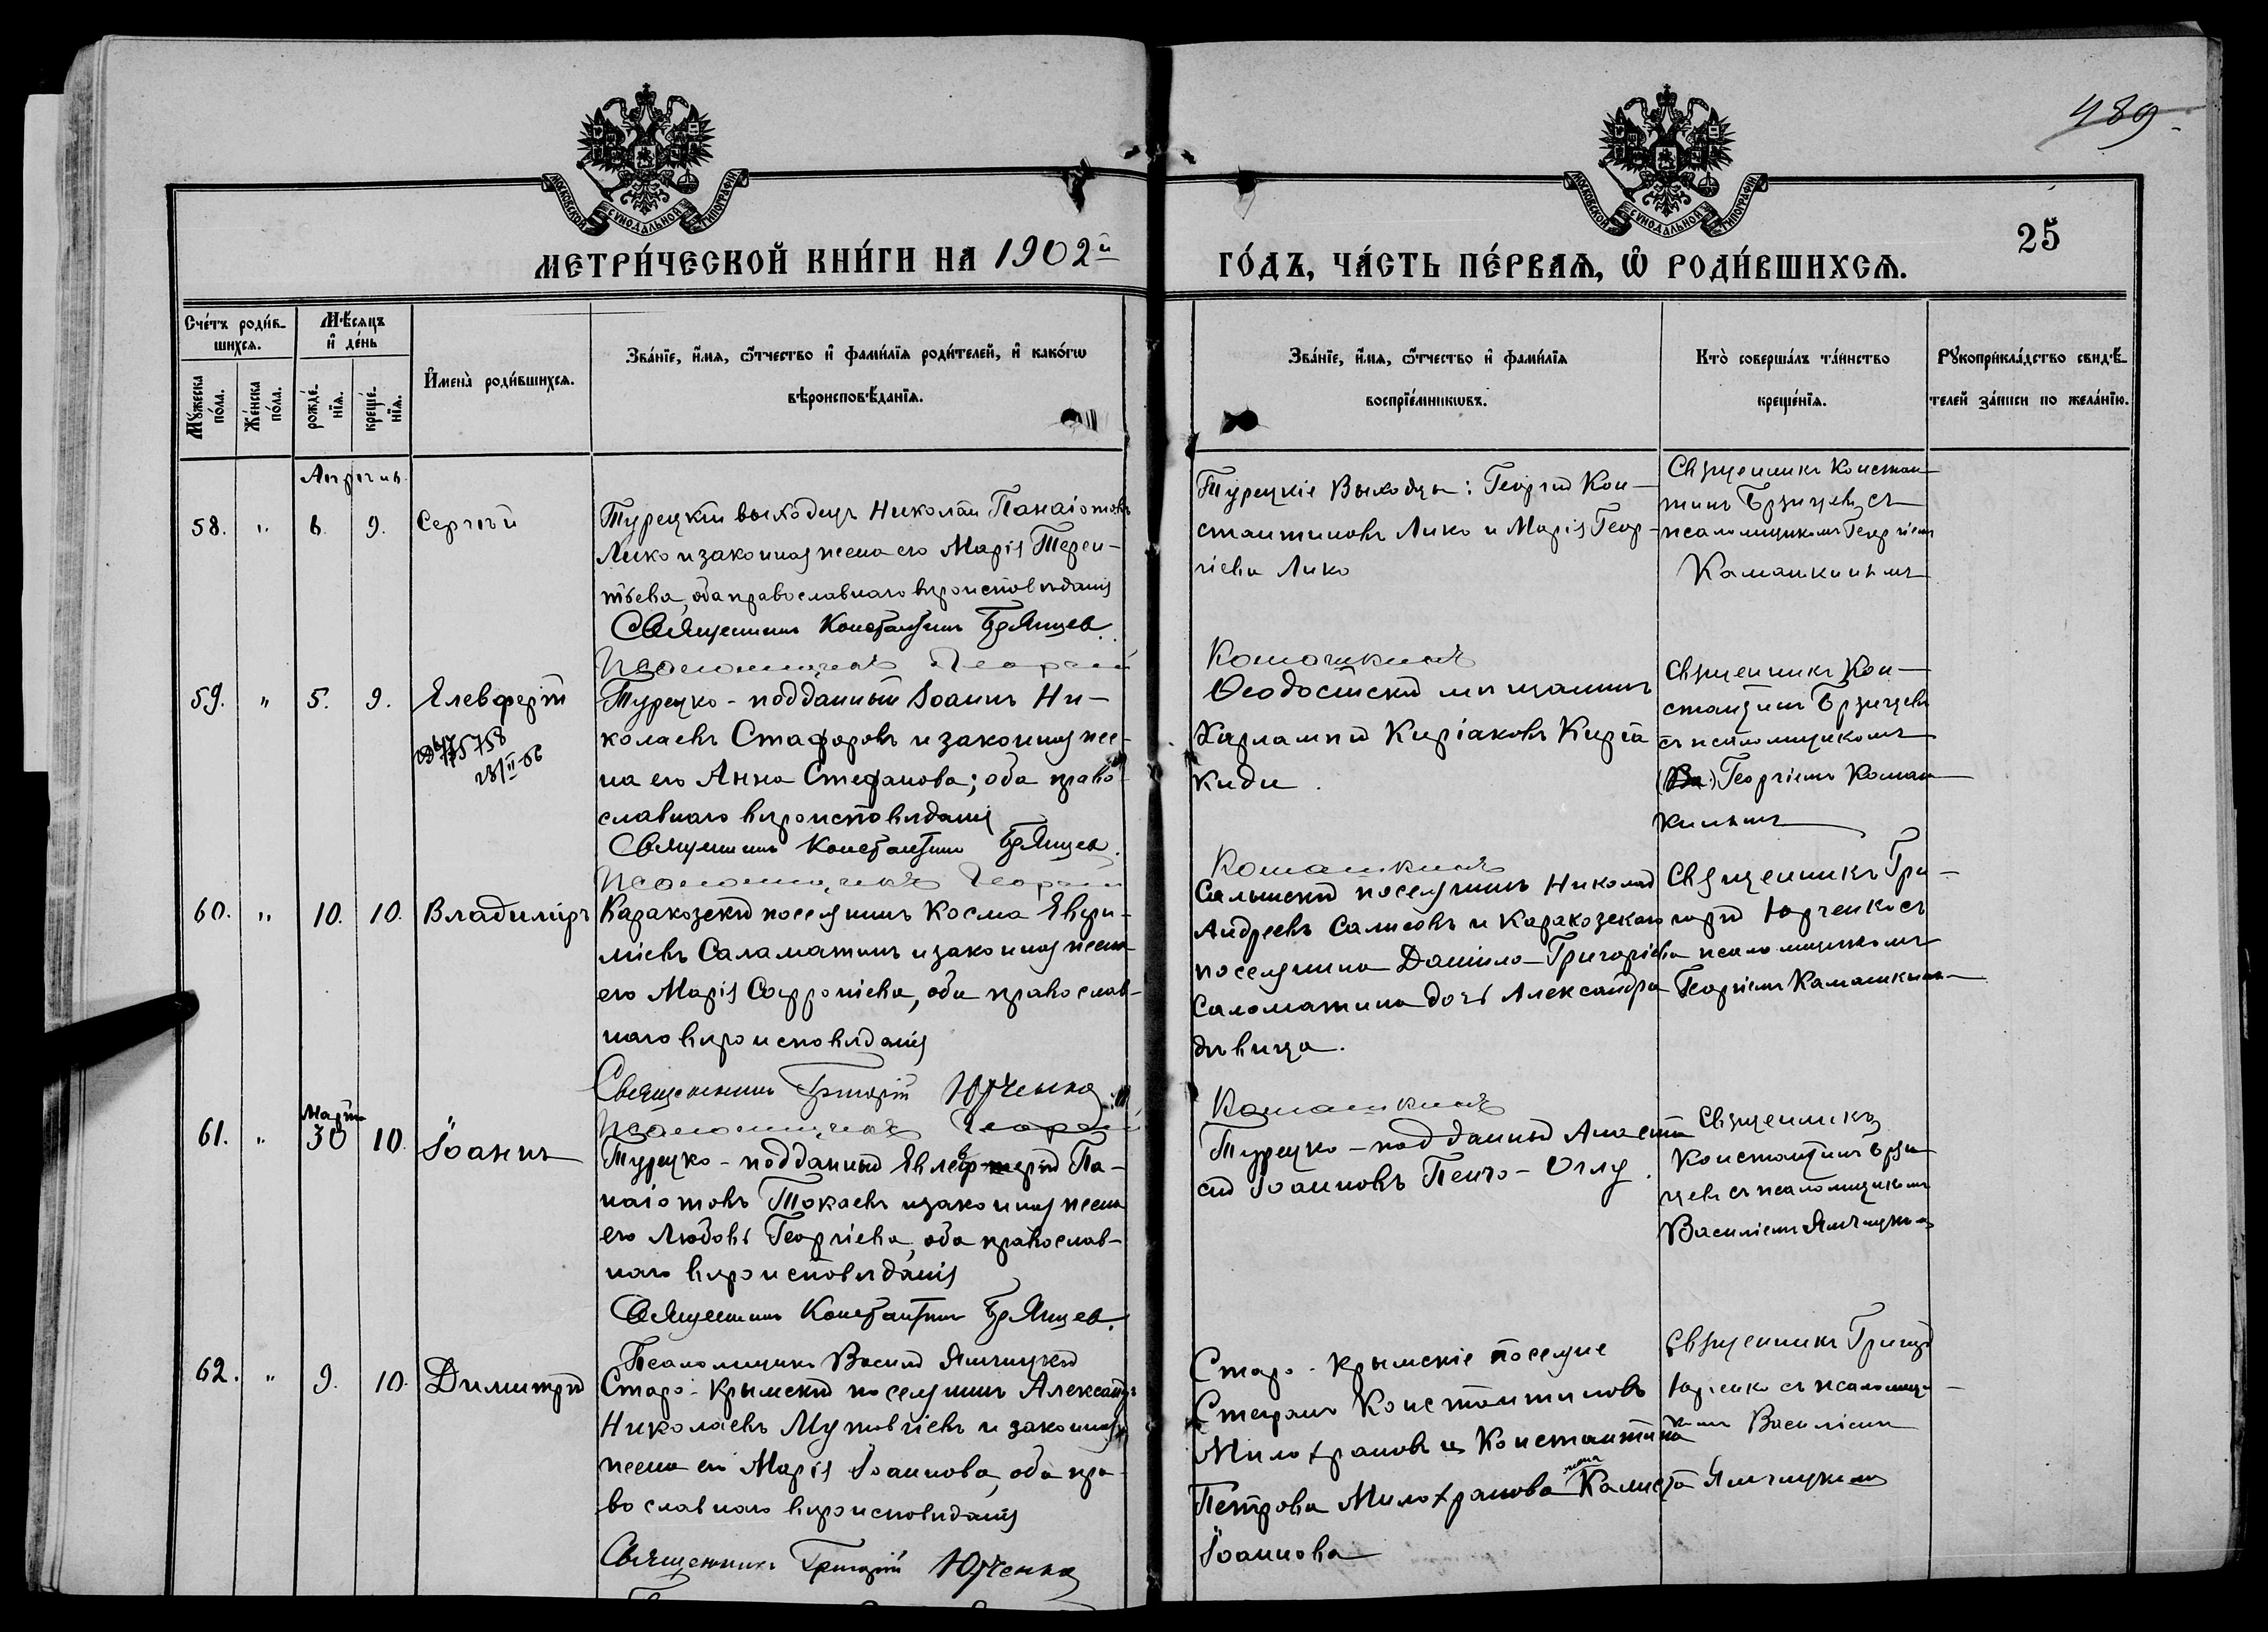 489.
МОСКОВСКОЙ СѴНОДАЛЬНОЙ ТИПОГРАФІИ
МОСКОВСКОЙ СѴНОДАЛЬНОЙ ТИПОГРАФІИ
25
МЕТРИ́ЧЕСКОЙ КНИ́ГИ НА 1902й
ГО́ДЪ, ЧА́СТЬ ПЕ́РВАѦ, Ѽ РОДИ́ВШИХСѦ.
Сче́тъ роди́в-
шихсѧ.
Мѣ́сѧцъ
и҆ де́нь
Мꙋ́жеска по́ла.
Же́нска по́ла.
рожде́-
нїѧ.
креще́-
нїѧ.
И҆мена̀ роди́вшихсѧ.
Зва́нїе, и҆́мѧ, ѻ҆́тчество и҆ фами́лїѧ роди́телей, и҆ како́гѡ
вѣроисповѣ́данїѧ.
Зва́нїе, и҆́мѧ, ѻ҆́тчество и҆ фами́лїѧ
воспрїе́мникѡвъ.
Кто̀ соверша́лъ та́инство
креще́нїѧ.
Рꙋкоприкла́дство свидѣ́-
телей за́писи по жела́нїю.
Апрѣль
58. " 6. 9. Сергѣй
Турецкій выходецъ Николай Панаіотовъ
Лико и законная жена его Марія Терен-
тьева, оба православнаго вѣроисповѣданія
Священникъ Константинъ Брянцев.
Псаломщикъ Георгій
Турецкіе Выходцы: Георгій Кон-
стантиновъ Лико и Марія Геор-
гіева Лико
Камашкинъ
Священникъ Констан-
тинъ Брянцевъ съ
псаломщикомъ Георгіемъ
Камашкинымъ
59. " 5. 9. Елевферій
Турецко-подданный Іоаннъ Ни-
колаевъ Стафоровъ и законная же-
на его Анна Стефанова; оба право-
славнаго вѣроисповѣданія
Священникъ Константинъ Брянцев.
Псаломщикъ Георгій
Ѳеодосійскій мѣщанинъ
Харлампій Киріаковъ Киріа
киди.
Камашкинъ
Священникъ Кон-
стантинъ Брянцевъ
съ псаломщикомъ
Георгіемъ Камаш-
кинымъ
60. " 10. 10. Владиміръ
Каракозскій поселянинъ Косма Евфи-
міевъ Саламатинъ и законная жена
его Марія Софроніева, оба православ-
наго вѣроисповѣданія
Священникъ Григорій Юрченко
Псаломщикъ Георгій
Салынскій поселянинъ Николай
Андреевъ Салисовъ и Каракозскаго
поселянина Даніила Григоріева
Саломатина дочь Александра
дѣвица.
Камашкинъ
Священникъ Гри-
горій Юрченко съ
псаломщикомъ
Георгіемъ Камашкин
61. " Март 30 10. Іоаннъ
Турецко-подданный Евлеферій Па-
наіотовъ Токаевъ и законная жена
его Любовь Георгіева, оба православ-
наго вѣроисповѣданія
Священникъ Константинъ Брянцев.
Псаломщикъ Василій Ямчицкій
Турецко-подданный Анаста
сій Іоанновъ Пенчо-Оглу.
Священникъ
Константинъ Брян-
цевъ съ псаломщикомъ
Василіемъ Ямчицким
62. " 9. 10. Димитрій
Старо-Крымскій поселянинъ Александръ
Николаевъ Мутовгіевъ и законная
жена его Марія Іоаннова, оба пра-
вославнаго вѣроисповѣданія
Священникъ Григорій Юрченко
Старо-Крымскіе поселяне
Стефанъ Константиновъ
Милохрановъ и Константина
Петрова Милохранова жена Калиста
Іоаннова
Священникъ Григорій
Юрченко съ псаломщи-
комъ Василіемъ
Ямчицкимъ